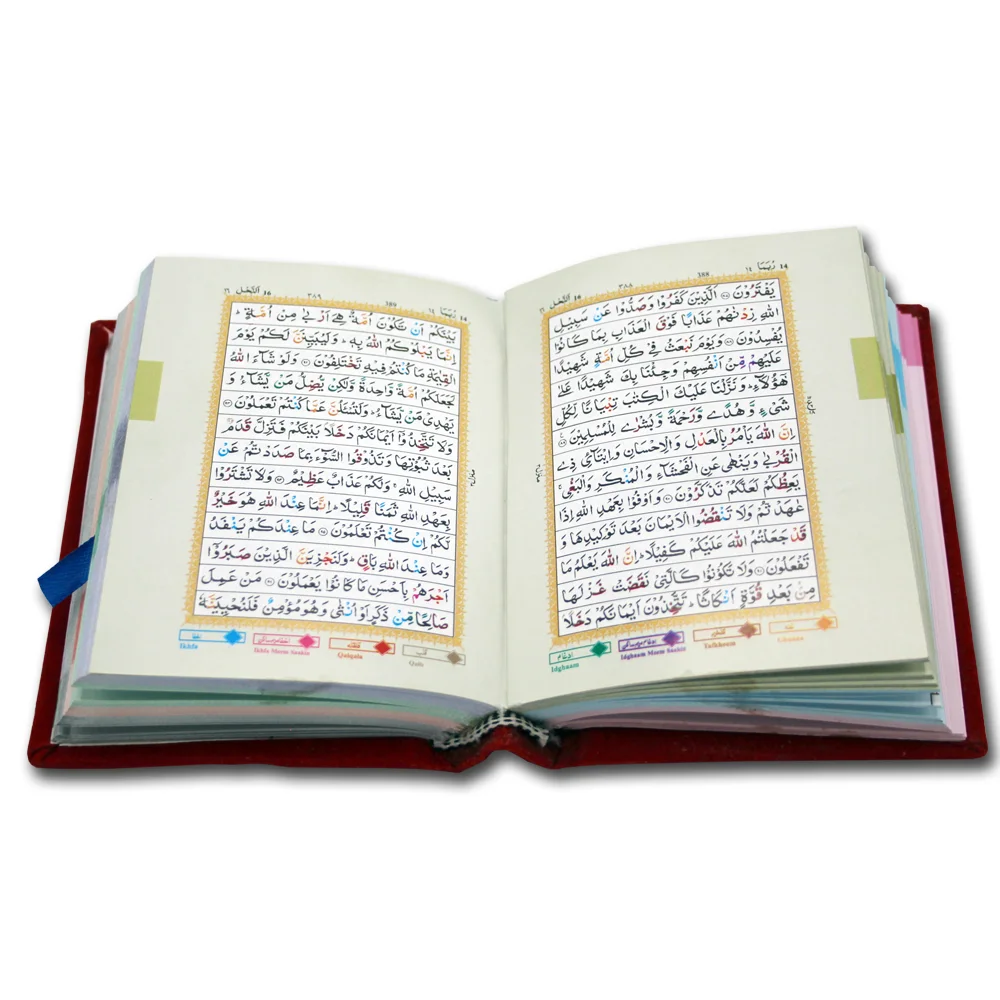 ١٦ اَلنَّحْل ١٦
٣٨٨
388
رُبَمَا ١٤
يَفْتَرُوْنَ ۝ اَلَّذِيْنَ كَفَرُوْا وَصَدُّوْا عَنْ سَبِيْلِ
اللّٰهِ زِدْنٰهُمْ عَذَابًا فَوْقَ الْعَذَابِ بِمَا كَانُوْا
يُفْسِدُوْنَ ۝ وَيَوْمَ نَبْعَثُ فِيْ كُلِّ اُمَّةٍ شَهِيْدًا
عَلَيْهِمْ مِّنْ اَنْفُسِهِمْ وَجِئْنَا بِكَ شَهِيْدًا عَلٰى
هٰٓؤُلَآءِ ؕ وَنَزَّلْنَا عَلَيْكَ الْكِتٰبَ تِبْيَانًا لِّكُلِّ
شَيْءٍ وَّهُدًى وَّرَحْمَةً وَّبُشْرٰى لِلْمُسْلِمِيْنَ ۝
اِنَّ اللّٰهَ يَاْمُرُ بِالْعَدْلِ وَالْاِحْسَانِ وَاِيْتَآئِ ذِي
الْقُرْبٰى وَيَنْهٰى عَنِ الْفَحْشَآءِ وَالْمُنْكَرِ وَالْبَغْيِ ۚ
يَعِظُكُمْ لَعَلَّكُمْ تَذَكَّرُوْنَ ۝ وَاَوْفُوْا بِعَهْدِ اللّٰهِ اِذَا
عٰهَدْتُّمْ وَلَا تَنْقُضُوا الْاَيْمَانَ بَعْدَ تَوْكِيْدِهَا وَ
قَدْ جَعَلْتُمُ اللّٰهَ عَلَيْكُمْ كَفِيْلًا ؕ اِنَّ اللّٰهَ يَعْلَمُ مَا
تَفْعَلُوْنَ ۝ وَلَا تَكُوْنُوْا كَالَّتِيْ نَقَضَتْ غَزْلَهَا
مِنْۢ بَعْدِ قُوَّةٍ اَنْكَاثًا ؕ تَتَّخِذُوْنَ اَيْمَانَكُمْ دَخَلًۢا
Idghaam
Idghaam Meem Saakin
Tafkheem
Ghunna
١٦ اَلنَّحْل ١٦
٣٨٩
389
رُبَمَا ١٤
بَيْنَكُمْ اَنْ تَكُوْنَ اُمَّةٌ هِيَ اَرْبٰى مِنْ اُمَّةٍ ؕ
اِنَّمَا يَبْلُوْكُمُ اللّٰهُ بِهٖ ؕ وَلَيُبَيِّنَنَّ لَكُمْ يَوْمَ
الْقِيٰمَةِ مَا كُنْتُمْ فِيْهِ تَخْتَلِفُوْنَ ۝ وَلَوْ شَآءَ اللّٰهُ
لَجَعَلَكُمْ اُمَّةً وَّاحِدَةً وَّلٰكِنْ يُّضِلُّ مَنْ يَّشَآءُ وَ
يَهْدِيْ مَنْ يَّشَآءُ ؕ وَلَتُسْـَٔلُنَّ عَمَّا كُنْتُمْ تَعْمَلُوْنَ ۝
وَلَا تَتَّخِذُوْٓا اَيْمَانَكُمْ دَخَلًۢا بَيْنَكُمْ فَتَزِلَّ قَدَمٌۢ
بَعْدَ ثُبُوْتِهَا وَتَذُوْقُوا السُّوْٓءَ بِمَا صَدَدْتُّمْ عَنْ
سَبِيْلِ اللّٰهِ ۚ وَلَكُمْ عَذَابٌ عَظِيْمٌ ۝ وَلَا تَشْتَرُوْا
بِعَهْدِ اللّٰهِ ثَمَنًا قَلِيْلًا ؕ اِنَّمَا عِنْدَ اللّٰهِ هُوَ خَيْرٌ
لَّكُمْ اِنْ كُنْتُمْ تَعْلَمُوْنَ ۝ مَا عِنْدَكُمْ يَنْفَدُ
وَمَا عِنْدَ اللّٰهِ بَاقٍ ؕ وَلَنَجْزِيَنَّ الَّذِيْنَ صَبَرُوْٓا
اَجْرَهُمْ بِاَحْسَنِ مَا كَانُوْا يَعْمَلُوْنَ ۝ مَنْ عَمِلَ
صَالِحًا مِّنْ ذَكَرٍ اَوْ اُنْثٰى وَهُوَ مُؤْمِنٌ فَلَنُحْيِيَنَّهٗ
Ikhfa
Ikhfa Meem Saakin
Qalqala
Qalb